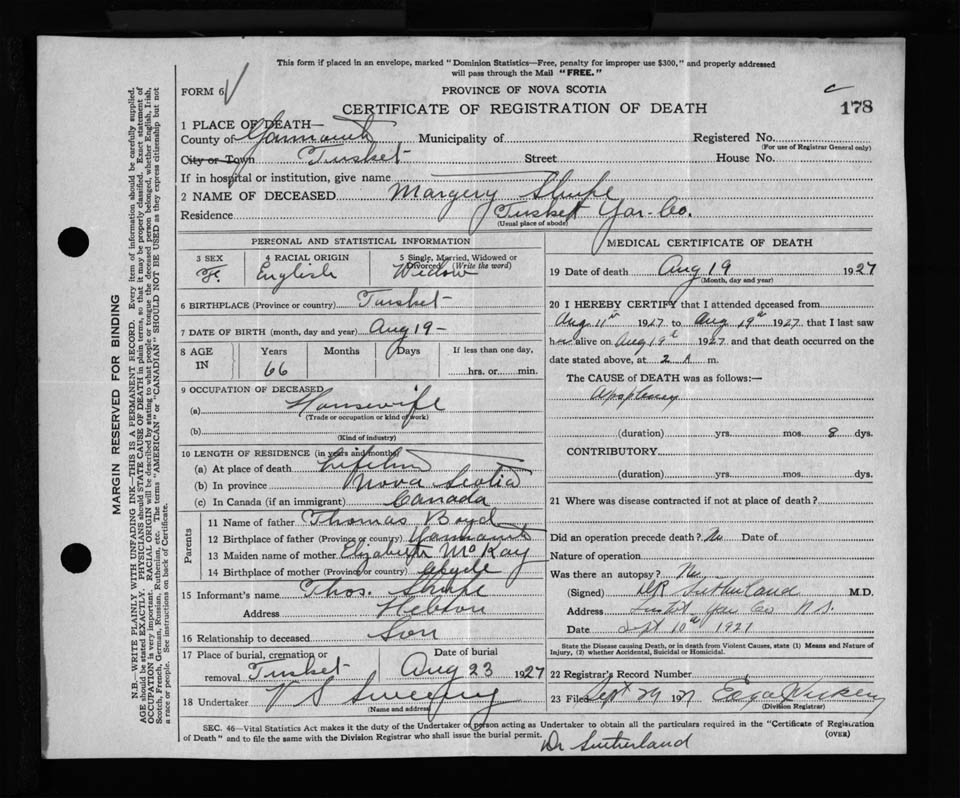 This form if placed in an envelope, marked "Dominion Statistics—Free, penalty for improper use $300," and properly addressed
will pass through the Mail "FREE."
FORM 6
PROVINCE OF NOVA SCOTIA
CERTIFICATE OF REGISTRATION OF DEATH
178
1 PLACE OF DEATH—
County of Yarmouth Municipality of Registered No.
(For use of Registrar General only)
City or Town Tusket Street House No.
If in hospital or institution, give name
2 NAME OF DECEASED Margery
Residence Tusket Yar-Co.
(Usual place of abode)
PERSONAL AND STATISTICAL INFORMATION
3 SEX 4 RACIAL ORIGIN 5 Single, Married, Widowed or
Divorced (Write the word)
F. English Widow
6 BIRTHPLACE (Province or country) Tusket
7 DATE OF BIRTH (month, day and year) Aug 19-
8 AGE IN Years Months Days If less than one day,
66 hrs. or min.
9 OCCUPATION OF DECEASED
(a) Housewife
(Trade or occupation or kind of work)
(b)
(Kind of industry)
10 LENGTH OF RESIDENCE (in years and months)
(a) At place of death Lifetime
(b) In province Nova Scotia
(c) In Canada (if an immigrant) Canada
Parents
11 Name of father Thomas Boyd
12 Birthplace of father (Province or country) Yarmouth
13 Maiden name of mother Elizabeth McKay
14 Birthplace of mother (Province or country) Clyde
15 Informant's name Thos.
Address Hebron
16 Relationship to deceased Son
17 Place of burial, cremation or Date of burial
removal Tusket Aug 23 1927
18 Undertaker V S Sweeny
(Name and address)
MEDICAL CERTIFICATE OF DEATH
19 Date of death Aug 19 1927
(Month, day and year)
20 I HEREBY CERTIFY that I attended deceased from
Aug 11th 1927 to Aug 19th 1927 that I last saw
her alive on Aug 19th 1927 and that death occurred on the
date stated above, at 2 A m.
The CAUSE of DEATH was as follows:—
Apoplexy
(duration) yrs. mos. 8 dys.
CONTRIBUTORY
(duration) yrs. mos. dys.
21 Where was disease contracted if not at place of death?
Did an operation precede death? No Date of
Nature of operation
Was there an autopsy? No
(Signed) Sutherland M.D.
Address Tusket Yar Co N.S.
Date Sept 10th 1927
State the Disease causing Death, or in death from Violent Causes, state (1) Means and Nature of
Injury, (2) whether Accidental, Suicidal or Homicidal.
22 Registrar's Record Number
23 Filed Sept 29 1927
(Division Registrar)
SEC. 46—Vital Statistics Act makes it the duty of the Undertaker or person acting as Undertaker to obtain all the particulars required in the "Certificate of Registration
of Death" and to file the same with the Division Registrar who shall issue the burial permit. (OVER)
Dr Sutherland
MARGIN RESERVED FOR BINDING
N.B.—WRITE PLAINLY WITH UNFADING INK—THIS IS A PERMANENT RECORD. Every item of information should be carefully supplied.
AGE should be stated EXACTLY. PHYSICIANS should STATE CAUSE OF DEATH in plain terms, so that it may be properly classified. Exact statement of
OCCUPATION is very important. RACIAL ORIGIN will be described by stating to what people or tongue the deceased person belonged, whether English, Irish,
Scotch, French, German, Russian, Ruthenian, etc. The terms "AMERICAN" or "CANADIAN" SHOULD NOT BE USED as they express citizenship but not
a race or people. See instructions on back of Certificate.